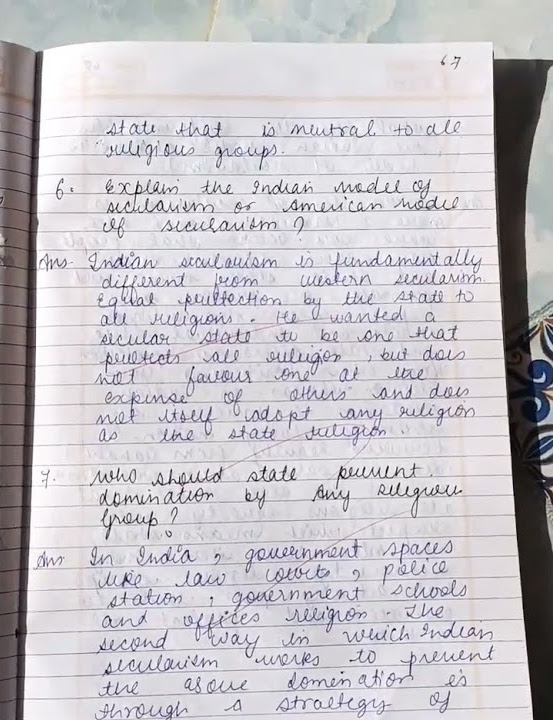 67
state that is neutral to all
religious groups.
6. Explain the Indian model of
secularism or American model
of secularism ?
Ans- Indian secularism is fundamentally
different from western secularism.
Equal protection by the state to
all religions. He wanted a
secular state to be one that
protects all religion, but does
not favour one at the
expense of others and does
not itself adopt any religion
as the state religion.
7. Who should state prevent
domination by any religious
Group ?
Ans- In India, government spaces
like law courts, police
station, government schools
and offices religion. The
second way in which Indian
secularism works to prevent
the domination is
through a straetegy of